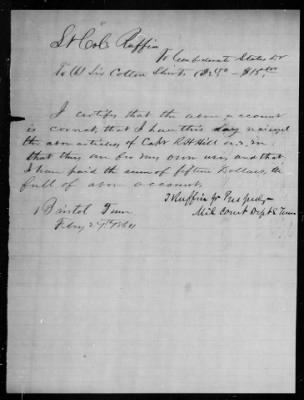 Lt Col Ruffin
To Confederate States Dr
To Six Cotton Shirts @ 2 50 - $15.00
I certify that the above account
is correct, that I have this day received
the above articles of Capt R H Hill
that they are for my own use, and that
I have paid the sum of fifteen Dollars in
full of above account
T Ruffin Jr
Mil Court Dept E Tenn
Bristol Tenn
Feby 29th 1864